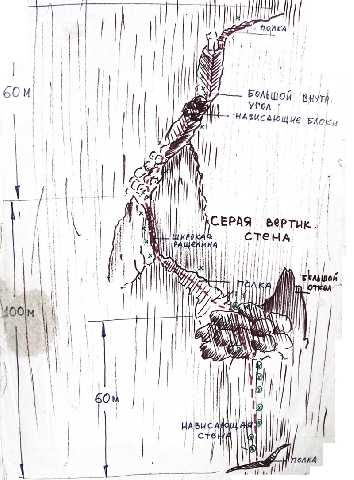 ПОЛКА
60М
БОЛЬШОЙ ВНУТР.
УГОЛ
НАВИСАЮЩИЕ БЛОКИ
СЕРАЯ ВЕРТИК.
СТЕНА
ШИРОКАЯ
РАЩЕЛИНА
ПОЛКА
БОЛЬШОЙ
ОТКОЛ
100М
60М
НАВИСАЮЩАЯ
СТЕНА
ПОЛКА